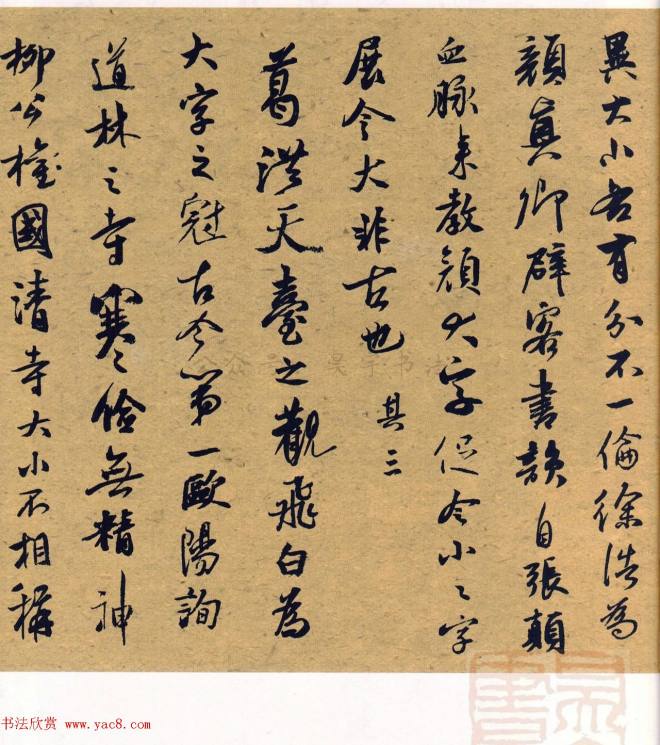 異大小各有分不一倫徐浩為
顏真卿辟客書韻自張顛
血脈来教顏大字促令小〻字
展令大非古也 其三
葛洪天臺之觀飛白為
大字之冠古今第一歐陽詢
道林之寺寒〻儉無精神
柳公權國清寺大小不相稱
书法欣赏 www.yac8.com